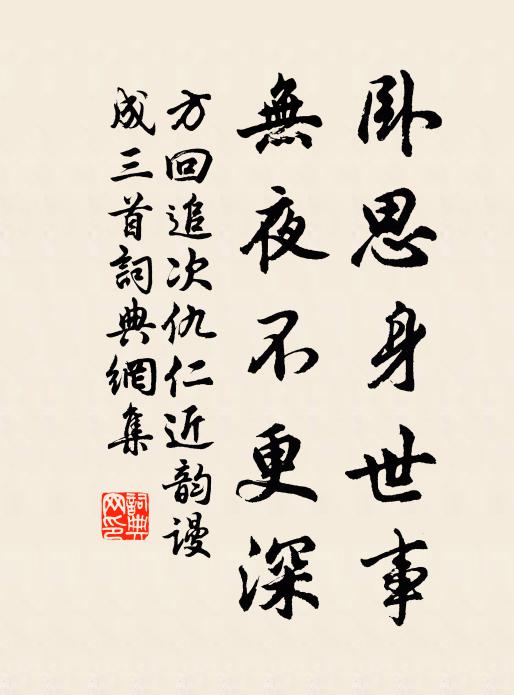 卧思身世事
無夜不更深
方回追次仇仁近韵谩
成三首詞典網集
詞典
网印